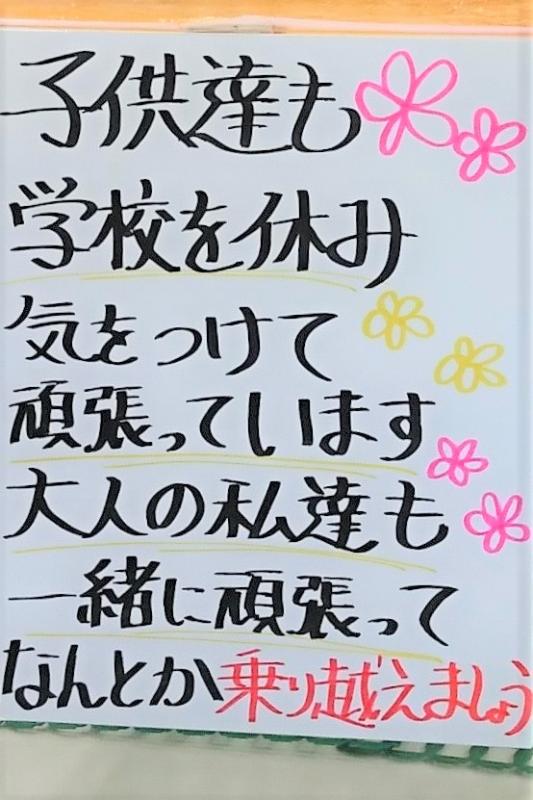 子供達も
学校を休み
気をつけて
頑張っています
大人の私達も
一緒に頑張って
なんとか乗り越えましょう